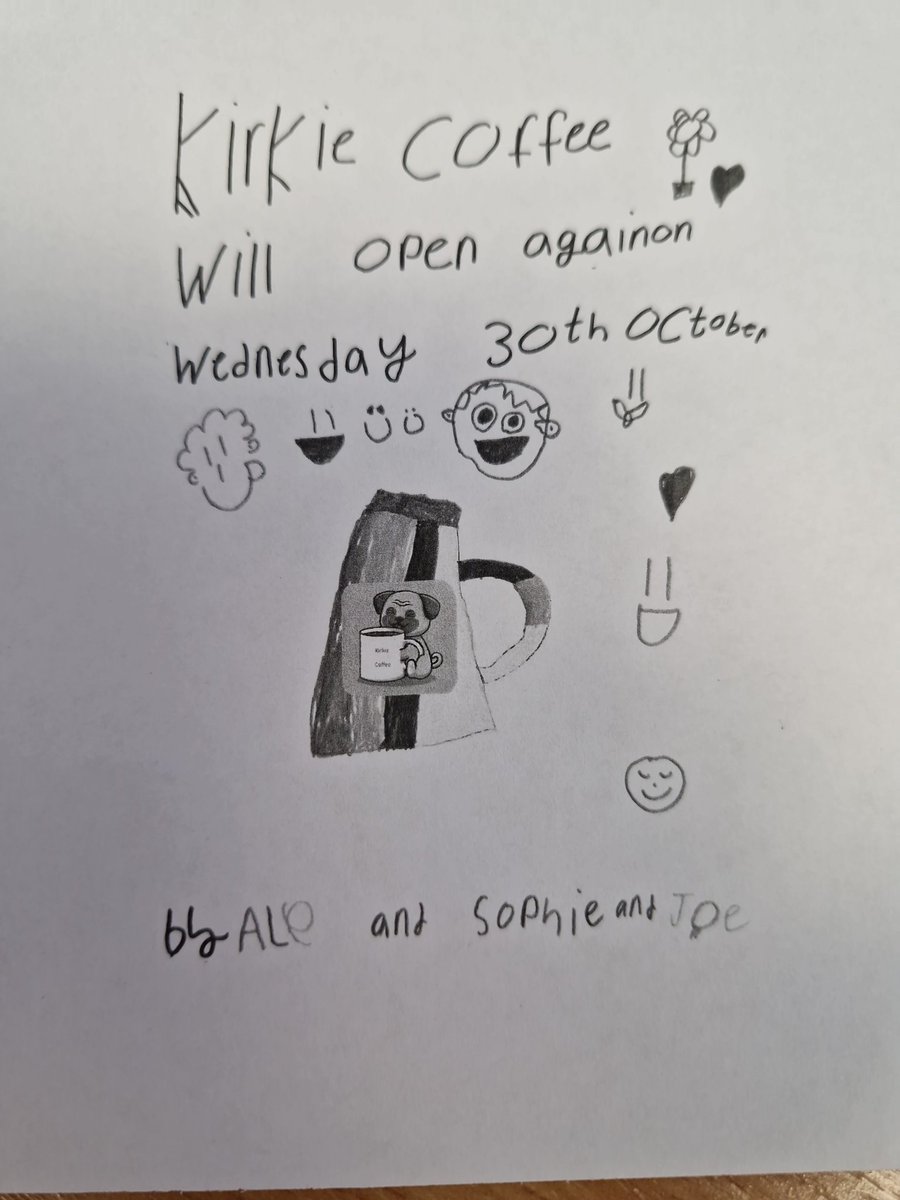 Kirkie Coffee
Will open againon
Wednesday 30th October
Kirkie
Coffee
by ALO and Sophie and Joe